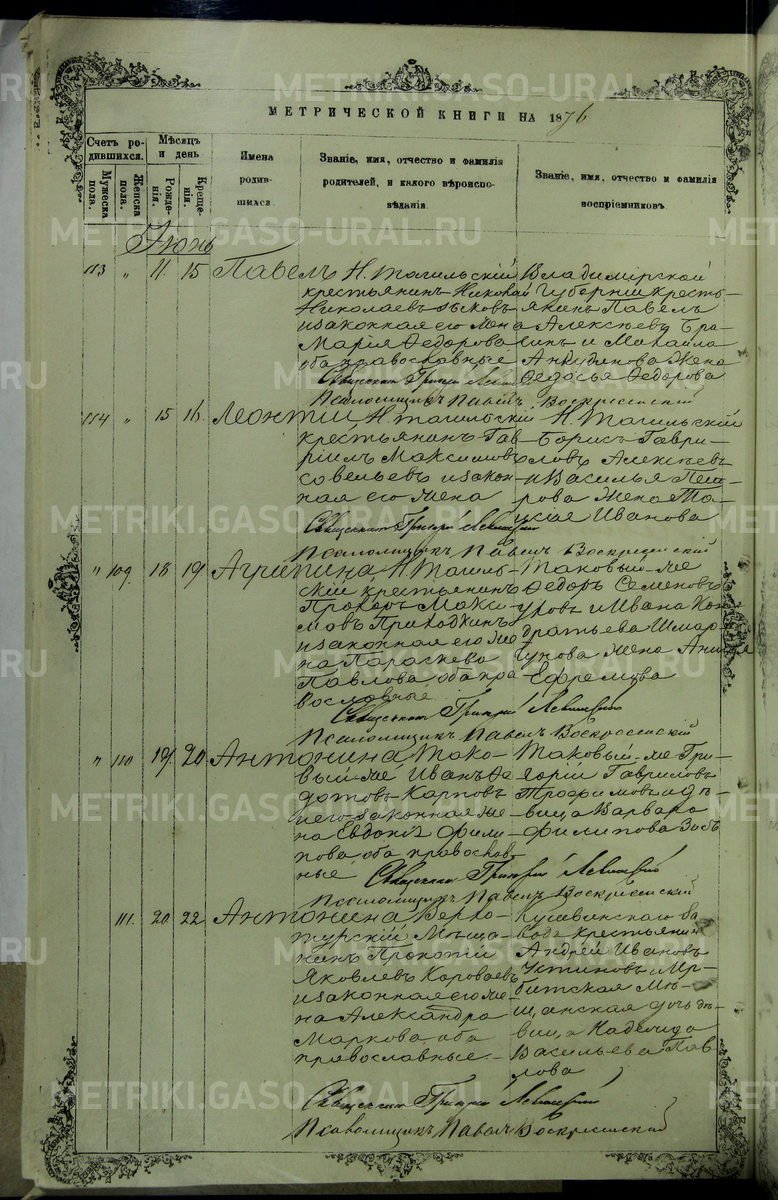 МЕТРИЧЕСКОЙ КНИГИ НА 1876
Счетъ ро-
дившихся.
Мужеска
пола.
Женска
пола.
Мѣсяцъ
и день
Рожде-
нія.
Креще-
нія.
Имена
родив-
шихся.
Званіе, имя, отчество и фамилія
родителей, и какого вѣроиспо-
вѣданія.
Званіе, имя, отчество и фамилія
воспріемниковъ.
Іюнь
113 " 11. 15 Павелъ
Н. тагильскій
крестьянинъ Николай
Николаевъ
и законная его жена
Марія Ѳедорова
оба православные
Владимірской
Губерніи кресть-
янинъ Павелъ
Алексѣевъ Бра-
гинъ и Михаила
жена
Ѳедосья Ѳедорова
Священникъ Григорій Левицкій
Псаломщикъ Павелъ Воскресенскій
114 " 15 16. Леонтій
Н. тагильскій
крестьянинъ Гав-
ріилъ Максимовъ
Савельевъ и закон-
ная его жена
Н. Тагильскій
Борисъ Гаври-
ловъ Алексѣевъ
и Василья Пет-
рова жена Та-
исія Иванова
Священникъ Григорій Левицкій
Псаломщикъ Павелъ Воскресенскій
" 109. 18 19 Агрипина
Н. Тагиль-
скій крестьянинъ
Прохоръ Макси-
мовъ Приходкинъ
и законная его же-
на Параскева
Павлова оба пра-
вославные
Таковый-же
Ѳедоръ Семеновъ
и Ивана Кон-
дратьева
жена Анна
Ефремова
Священникъ Григорій Левицкій
Псаломщикъ Павелъ Воскресенскій
" 110 19. 20 Антонина
Тако-
вый-же Иванъ Ѳе-
дотовъ Карповъ
и его законная же-
на Евдокія Фили-
пова, оба православ-
ные
Таковый-же Гри-
горій Гавриловъ
Трофимовъ и дѣ-
вица Варвара
Филипова
Священникъ Григорій Левицкій
Псаломщикъ Павелъ Воскресенскій
111. 20 22 Антонина
Верхо-
турскій Мѣща-
нинъ Прокопій
Яковлевъ Короваевъ
и законная его же-
на Александра
Маркова, оба
православные.
Кушвинскаго за-
вода крестьянинъ
Андрей Ивановъ
Устиновъ и Ир-
битская Мѣ-
щанская дочь дѣ-
вица Надежда
Васильева Пав-
лова
Священникъ Григорій Левицкій
Псаломщикъ Павелъ Воскресенскій
METRIKI.GASO-URAL.RU